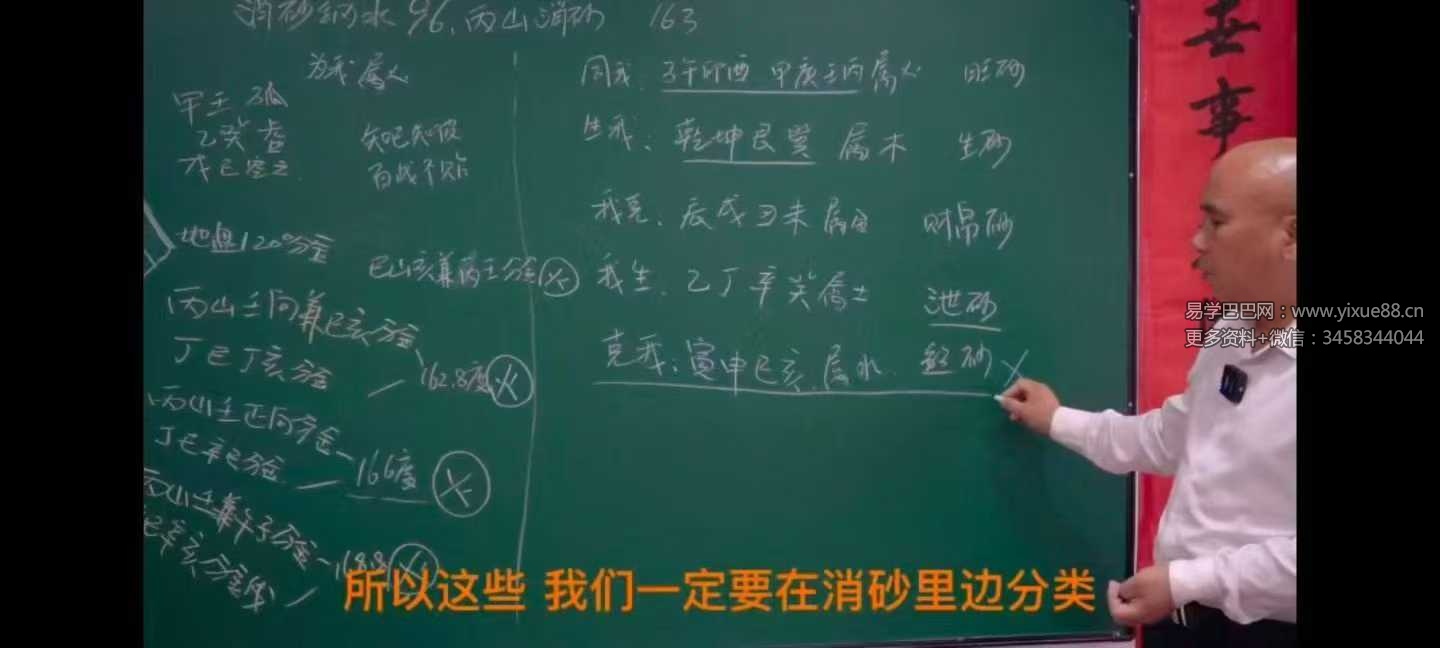 消砂纳水96.丙山消砂 163
为我属火
甲壬孤
乙癸虚
戊己空亡
知己知彼
百战不贻
地盘120分金
巳山亥兼丙壬分金 X
丙山壬向兼巳亥分金
丁巳丁亥分金 162.8度 X
丙山壬正向分金 166度 X
丙山壬兼午子分金 168.8 X
辛亥分金
同我:子午卯酉 甲庚壬丙属火 旺砂
生我:乾坤艮巽 属木 生砂
我克:辰戌丑未属金 财帛砂
我生:乙丁辛癸属土 泄砂
克我:寅申巳亥.属水. 煞砂 X
喜
事
易学巴巴网:www.yixue88.cn
更多资料+微信:3458344044
所以这些 我们一定要在消砂里边分类